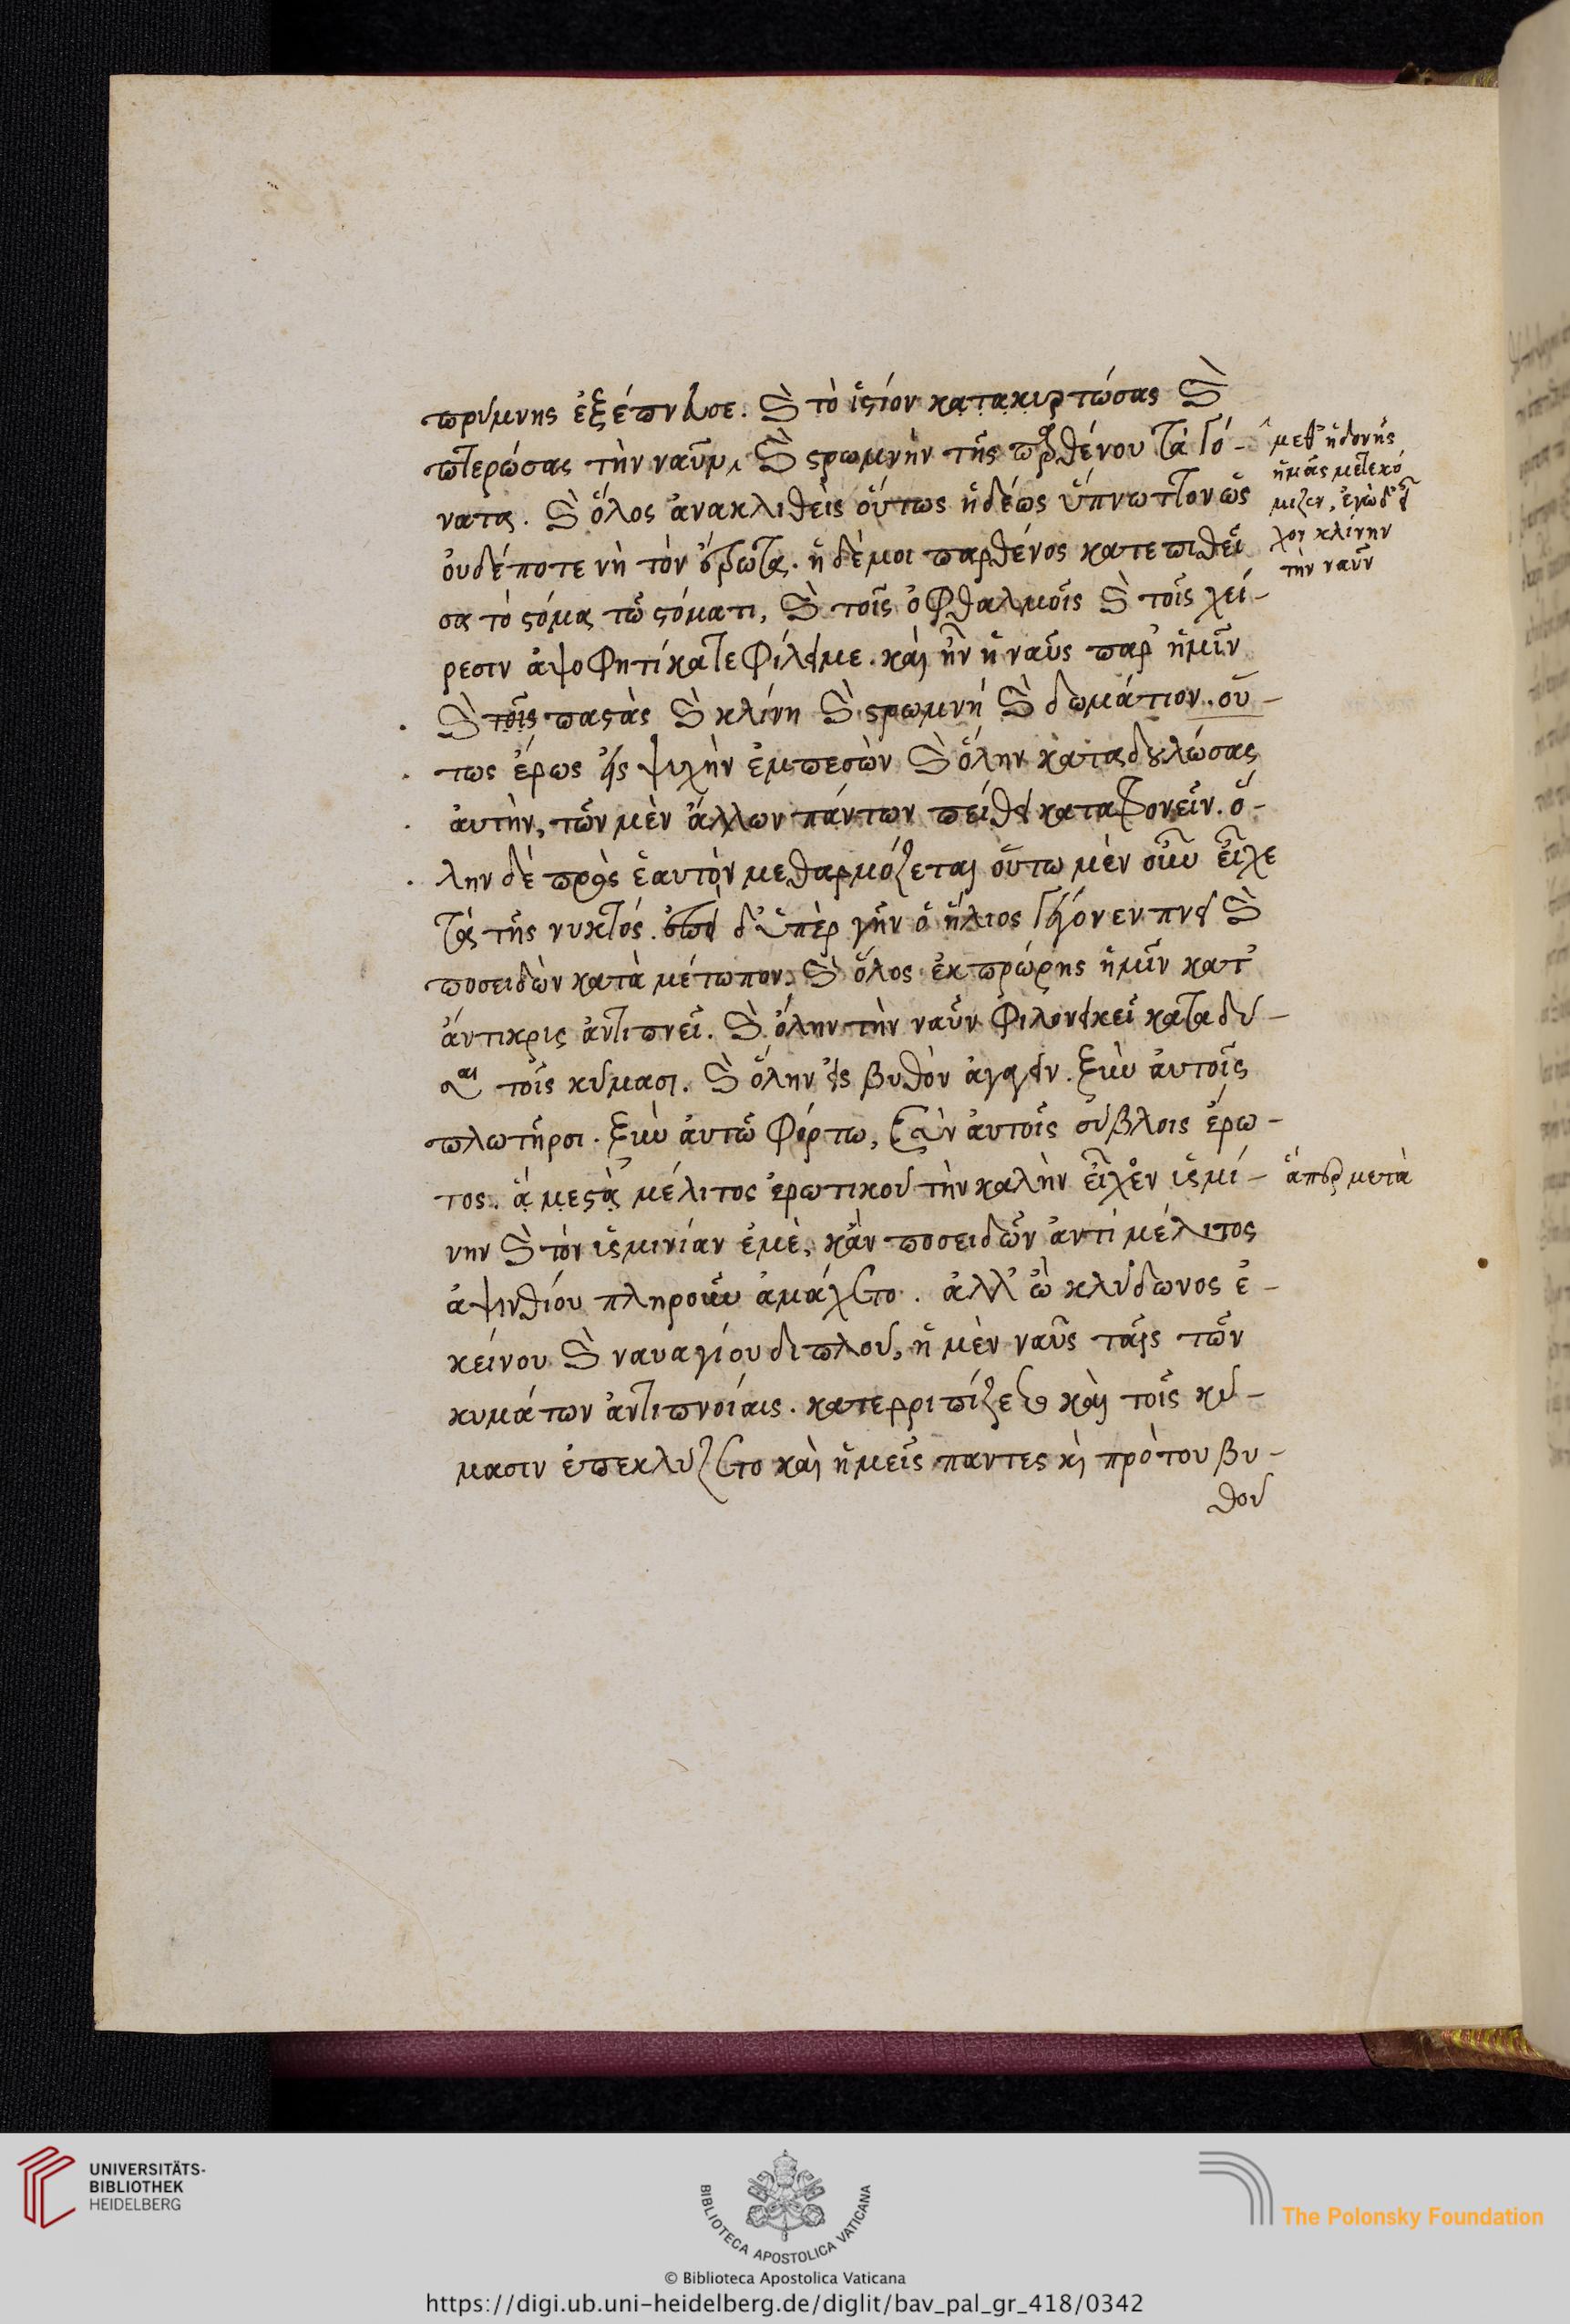 πρύμνης ἐξέπνευσε. καὶ τὸ ἱστίον κατακυρτώσας καὶ
πτερώσας τὴν ναῦν, καὶ στρωμνὴν τῆς παρθένου τὰ γό-
νατα. καὶ ὅλος ἀνακλιθεὶς οὕτως ἡδέως ὕπνωττον ὡς
οὐδέποτε νὴ τὸν ἔρωτα. ἡ δέ μοι παρθένος κατεπιθεῖ
σα τὸ στόμα τῶ στόματι, καὶ τοῖς ὀφθαλμοῖς καὶ τοῖς χεί-
ρεσιν ἀψοφητὶ κατεφίλει με. καὶ ἦν ἡ ναῦς παρ' ἡμῖν
καὶ τοῖς παστὰς καὶ κλίνη καὶ στρωμνή καὶ δωμάτιον. οὕ-
τως ἔρως εἰς ψυχὴν ἐμπεσὼν καὶ ὅλην καταδουλώσας
αὐτὴν, τῶν μὲν ἄλλων πάντων πείθει καταφρονεῖν. ὅ-
λην δὲ πρὸς ἑαυτὸν μεθαρμόζεται οὕτω μὲν οὖν εἶχε
τὰ τῆς νυκτός. ἐπεὶ δ' ὑπὲρ γῆν ὁ ἥλιος γέγονεν πνεῖ καὶ
ποσειδῶν κατὰ μέτωπον, καὶ ὅλος ἐκ πρώρης ἡμῖν κατ'
ἄντικρις ἀντιπνεῖ. καὶ ὅλην τὴν ναῦν φιλονεικεῖ καταδύ-
σαι τοῖς κύμασι. καὶ ὅλην εἰς βυθὸν ἀγαγεῖν. ξὺν αὐτοῖς
πλωτῆρσι. ξὺν αὐτῶ φόρτω, ξὺν αὐτοῖς σίμβλοις ἔρω-
τος. ἃ μεστὰ μέλιτος ἐρωτικοῦ τὴν καλὴν εἶχεν ὑσμί-
νην καὶ τὸν ὑσμινίαν ἐμὲ, κἂν ποσειδῶν ἀντὶ μέλιτος
ἀψινθίου πληροῦν ἀμάχετο. ἀλλ' ὢ κλύδωνος ἐ-
κείνου καὶ ναυαγίου διπλοῦ, ἡ μὲν ναῦς ταῖς τῶν
κυμάτων ἀντιπνοίαις. κατερριπίζετο καὶ τοῖς κύ-
μασιν ἐπεκλύζετο καὶ ἡμεῖς παντες καὶ πρὸ του βυ-
θοῦ
μεθ' ἡδονῆς
ἡμᾶς μετεκό
μιζεν, ἐγὼ δ' εἶ
χον κλίνην
τὴν ναῦν
ἅπερ μετὰ
UNIVERSITÄTS-
BIBLIOTHEK
HEIDELBERG
BIBLIOTECA APOSTOLICA VATICANA
The Polonsky Foundation
© Biblioteca Apostolica Vaticana
https://digi.ub.uni-heidelberg.de/diglit/bav_pal_gr_418/0342